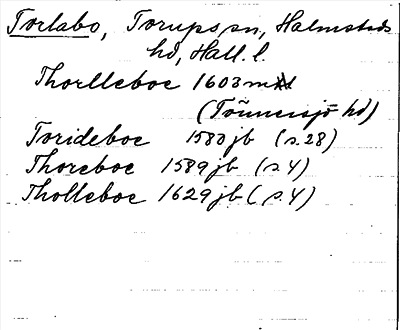 Torlabo, Torups sn, Halmsteds
hd, Hall. l.
Thorlleboe 1603
(Tönnersjö hd)
Torideboe 1580 jb (s. 28)
Thoreboe 1589 jb (s. 4)
Tholleboe 1629 jb (s. 4)